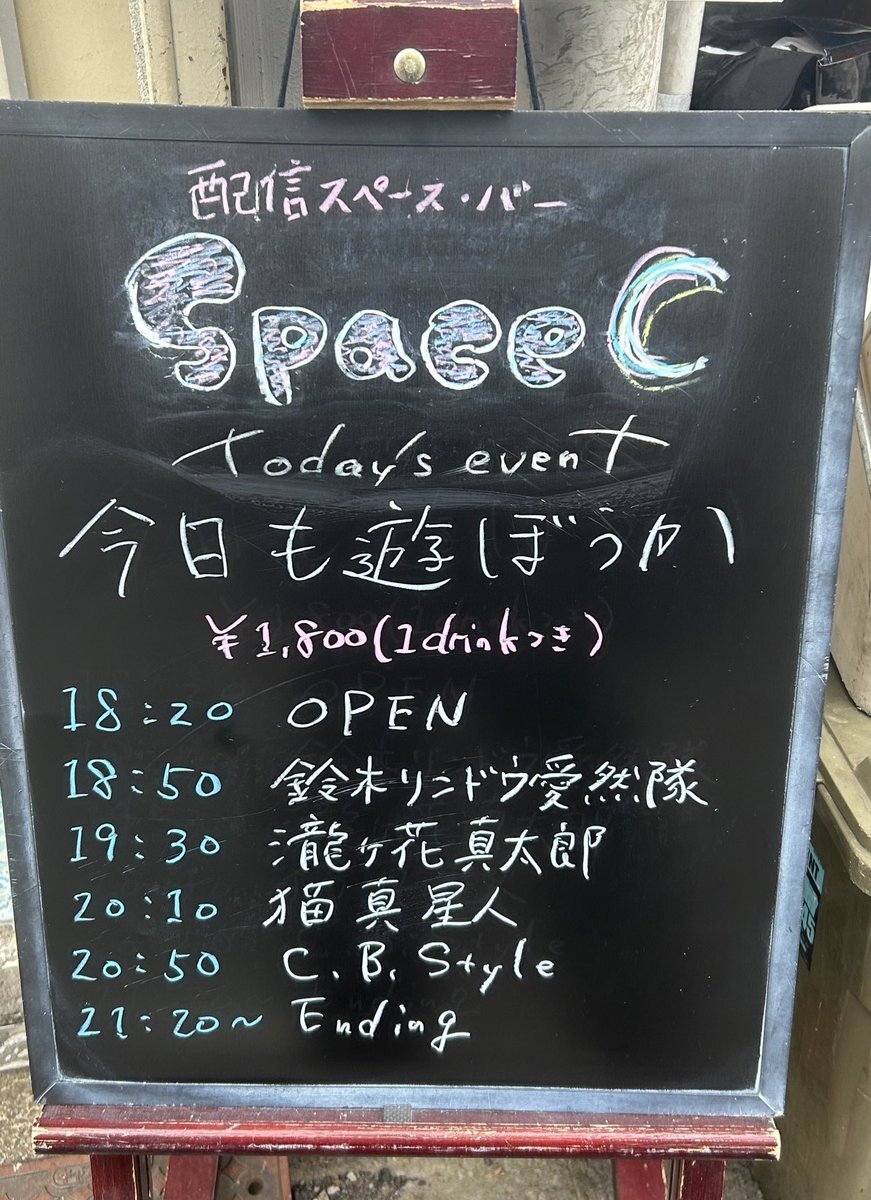 配信スペース・バー
Space C
Today's event
今日も遊ぼうか
¥1,800(1drinkつき)
18:20 OPEN
18:50 鈴木リンドウ愛然隊
19:30 瀧ヶ花真太郎
20:10 猫真星人
20:50 C.B.Style
21:20~ Ending